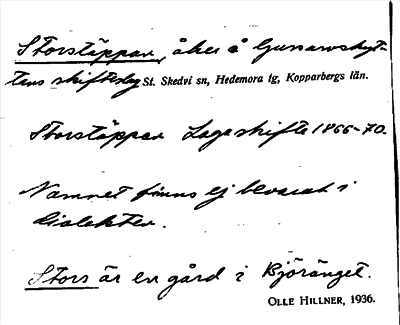 Storstäppan, åker å Gunnarshyt-
tans skifteslag St. Skedvi sn, Hedemora tg, Kopparbergs län.
Storstäppan Laga skifte 1866-70.
Namnet finns ej bevarat i
dialekten.
Stors är en gård i Björänget.
OLLE HILLNER, 1936.